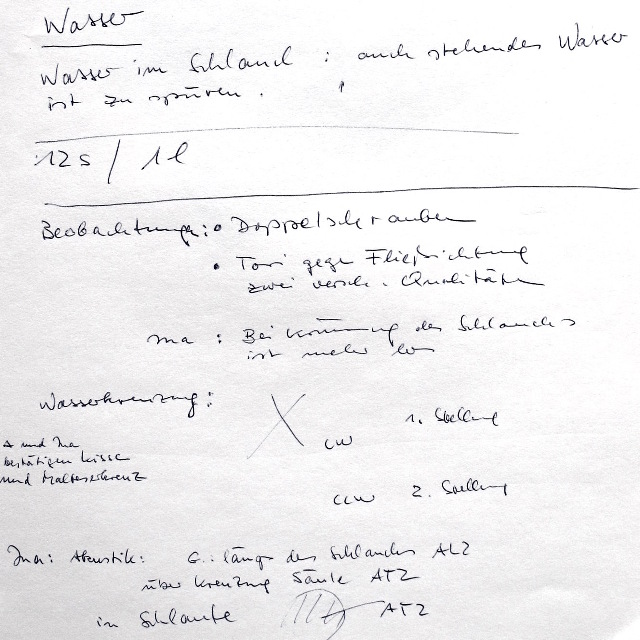 Wasser
Wasser im Schlauch : auch stehendes Wasser
ist zu spüren.
12 s / 1 l
Beobachtung: • Doppelschrauben
• Tori gegen Fließrichtung
zwei versch. Qualitäten
ma : Bei Krümmung des Schlauches
ist mehr los
Wasserkreuzung:
1. Stellung
CW
A und Ma
bestätigen Kisse
und Malteserkreuz
CCW 2. Stellung
Ma: Akustik: G.: längs des Schlauches ALZ
über Kreuzung Säule ATZ
in Schlaufe ATZ